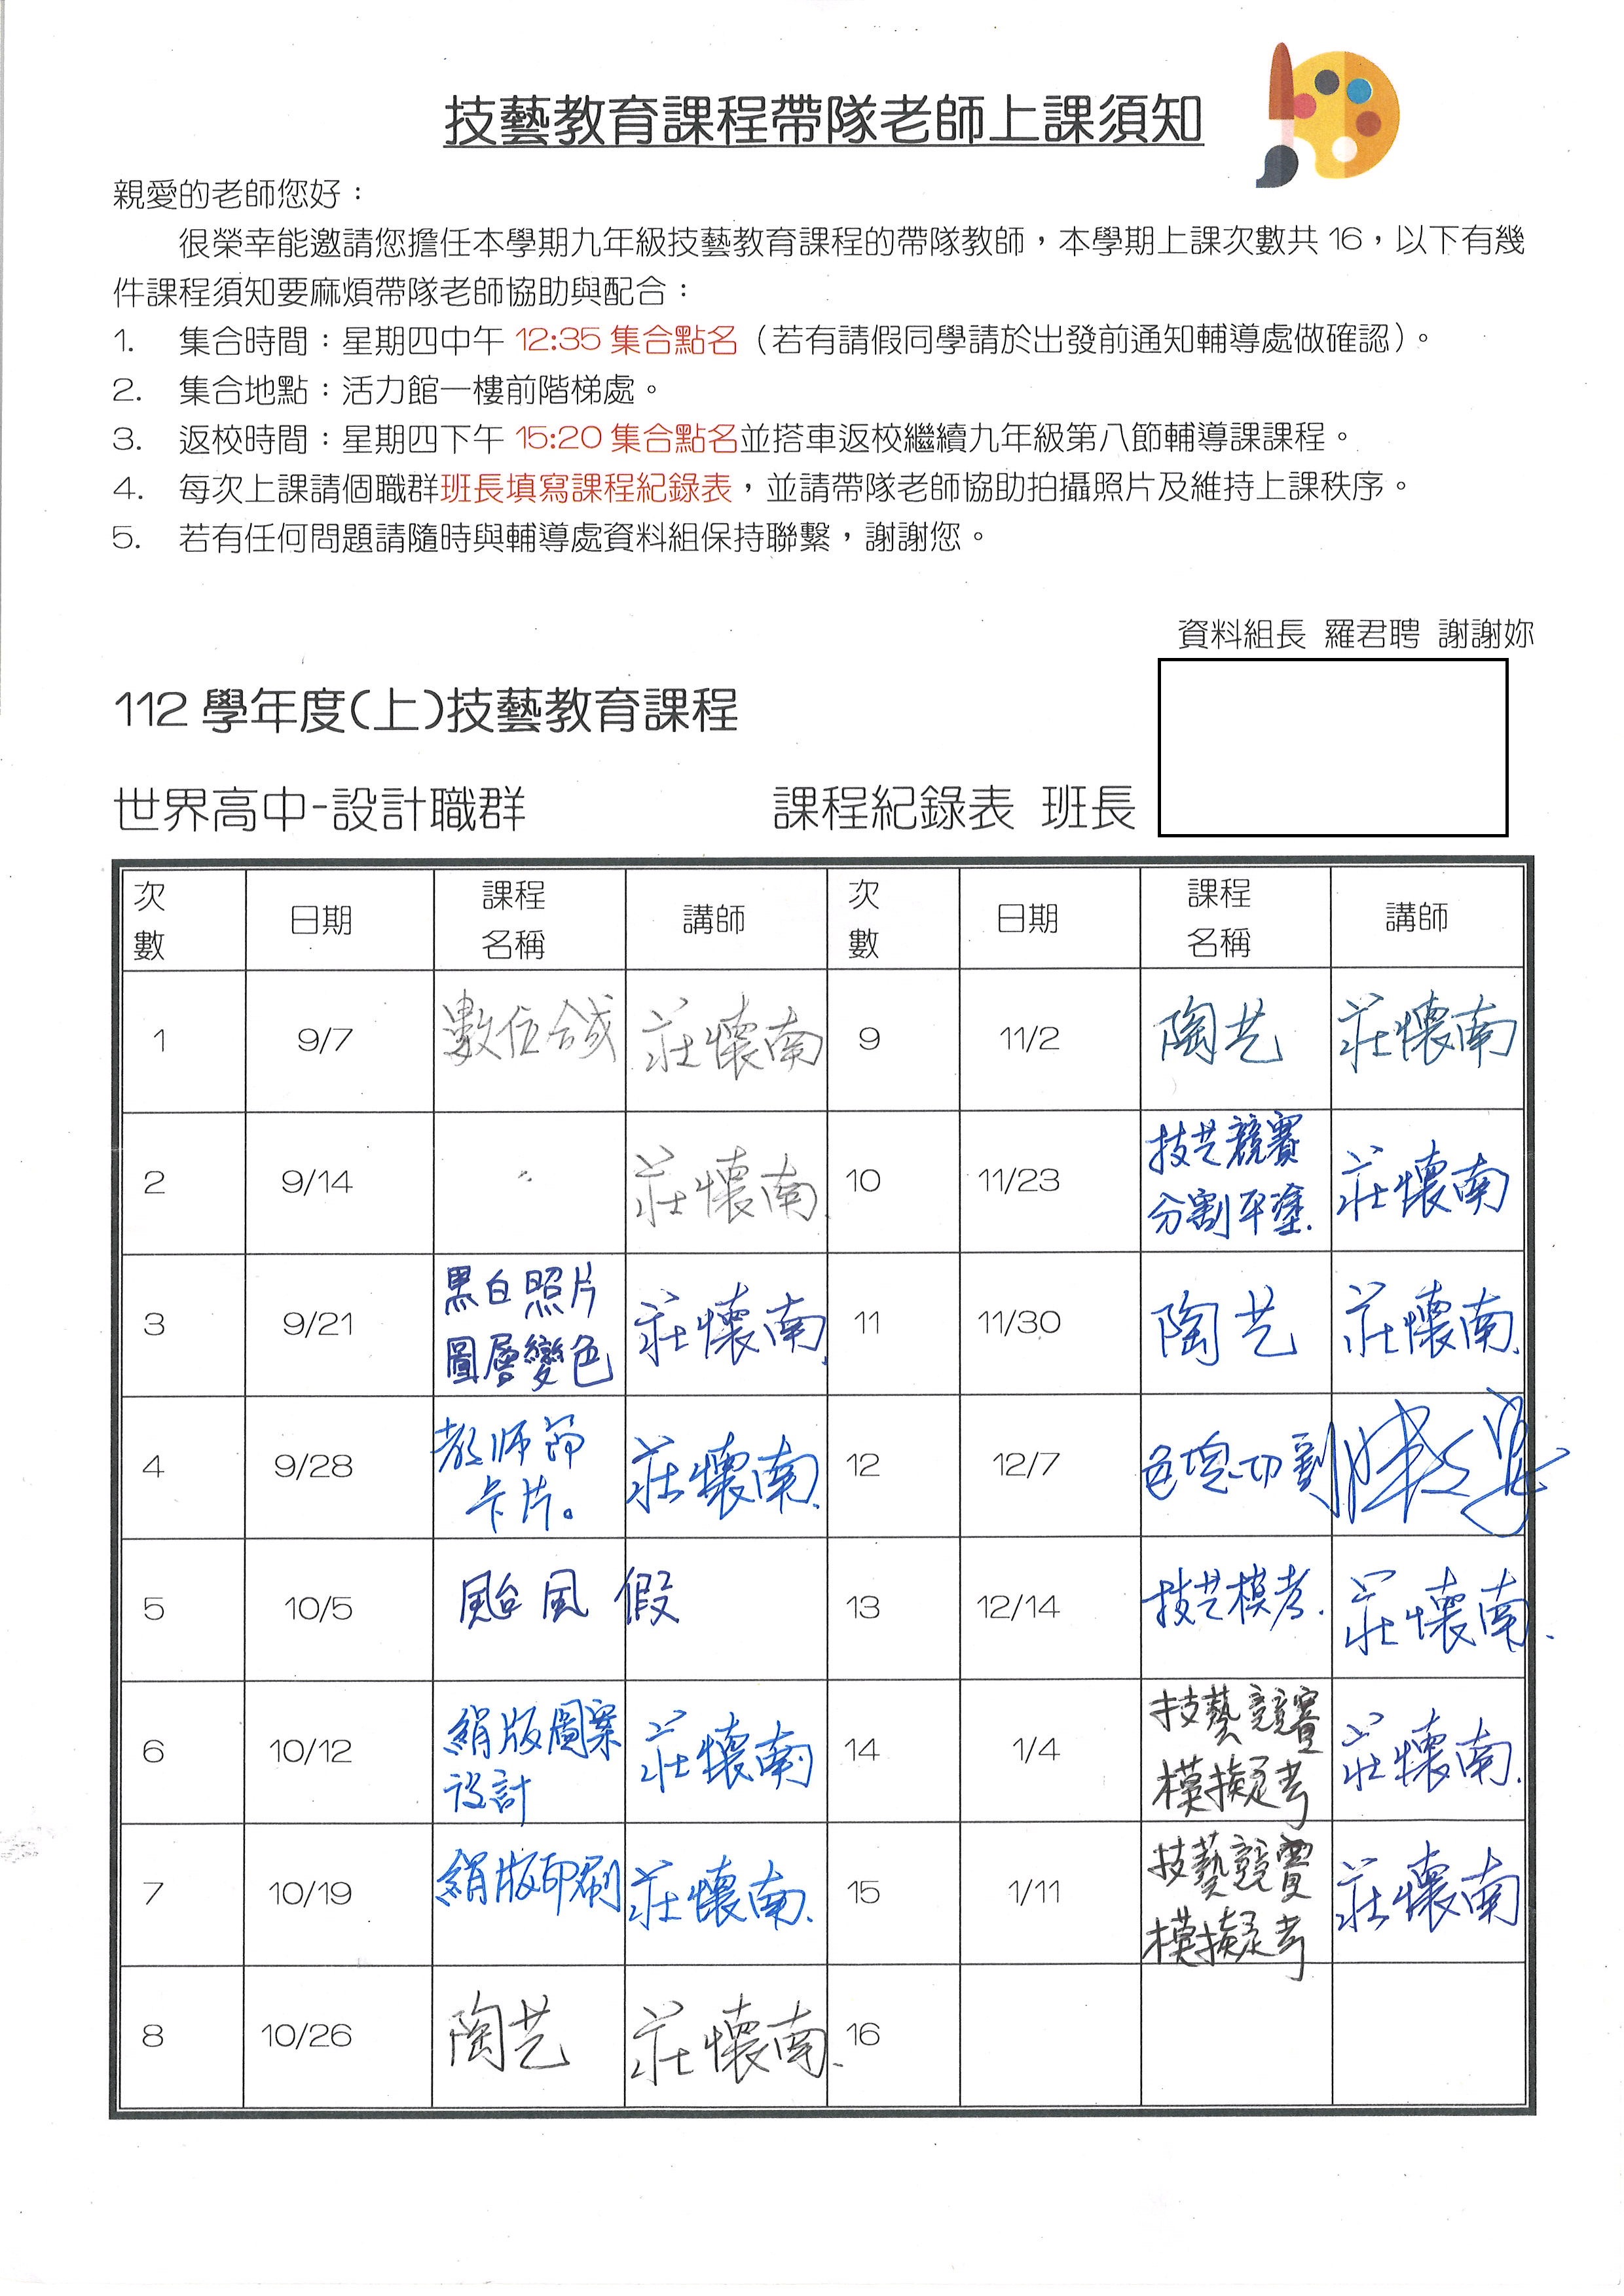 技藝教育課程帶隊老師上課須知
親愛的老師您好：
很榮幸能邀請您擔任本學期九年級技藝教育課程的帶隊教師，本學期上課次數共 16，以下有幾
件課程須知要麻煩帶隊老師協助與配合：
1. 集合時間：星期四中午 12:35 集合點名（若有請假同學請於出發前通知輔導處做確認）。
2. 集合地點：活力館一樓前階梯處。
3. 返校時間：星期四下午 15:20 集合點名並搭車返校繼續九年級第八節輔導課課程。
4. 每次上課請個職群班長填寫課程紀錄表，並請帶隊老師協助拍攝照片及維持上課秩序。
5. 若有任何問題請隨時與輔導處資料組保持聯繫，謝謝您。
資料組長 羅君聘 謝謝妳
112 學年度(上)技藝教育課程
世界高中-設計職群 課程紀錄表 班長
次數 日期 課程名稱 講師 次數 日期 課程名稱 講師
1 9/7 數位合成 莊懷南 9 11/2 陶艺 莊懷南
2 9/14 〃 莊懷南 10 11/23 技艺競賽 分割平塗. 莊懷南
3 9/21 黑白照片 圖層變色 莊懷南 11 11/30 陶艺 莊懷南.
4 9/28 教師節 卡片。 莊懷南. 12 12/7 色塊切割
5 10/5 颱風假 13 12/14 技艺模考. 莊懷南.
6 10/12 絹版圖案 設計 莊懷南 14 1/4 技藝競賽 模擬考 莊懷南.
7 10/19 絹版印刷 莊懷南. 15 1/11 技藝競賽 模擬考 莊懷南
8 10/26 陶艺 莊懷南. 16